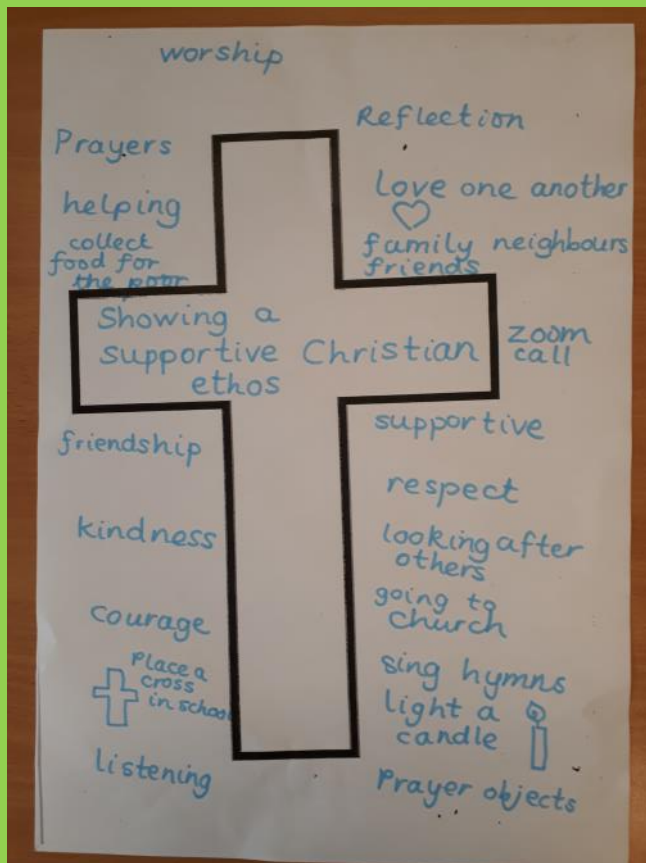 worship
Prayers
helping
collect
food for
the poor
Showing a
supportive Christian
ethos
friendship
kindness
courage
Place a
cross
in school
listening
Reflection
love one another
family neighbours
friends
zoom
call
supportive
respect
looking after
others
going to
church
sing hymns
light a
candle
Prayer objects